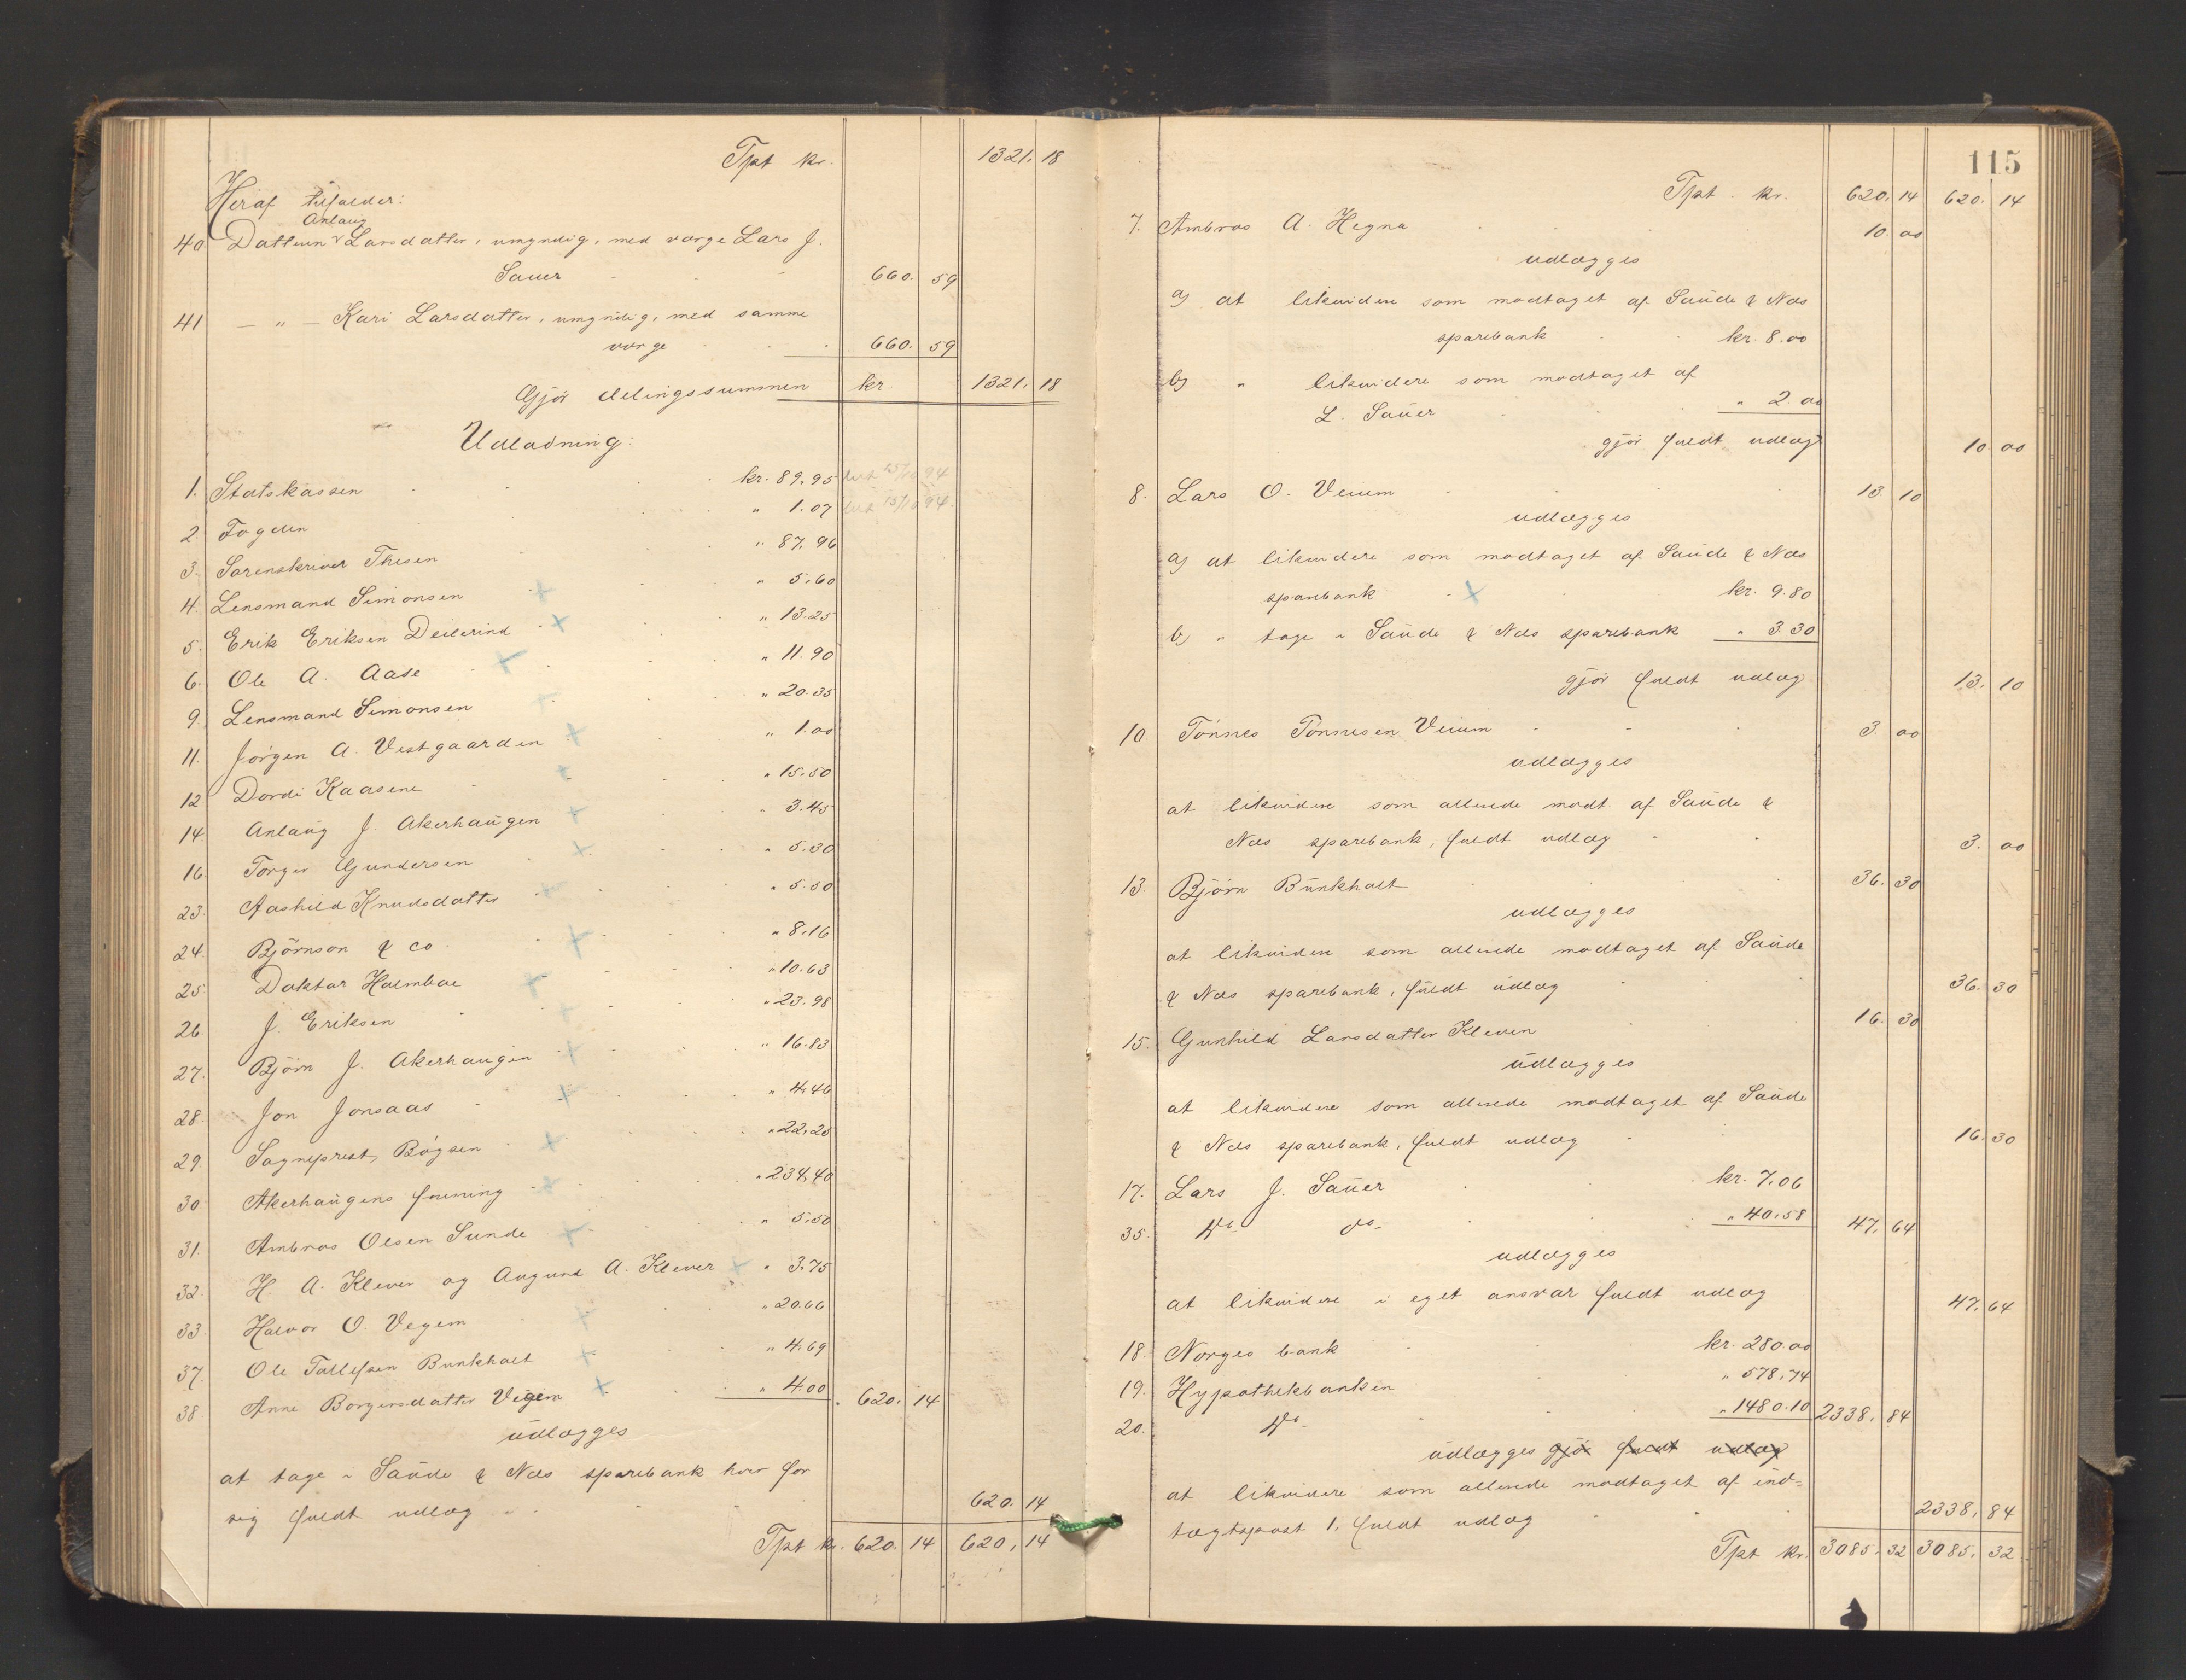 Tpt kr. 1321. 18
Heraf tilfalder:
Anlaug
40 Datteren Larsdatter, umyndig, med værge Lars J.
Sauer 660. 59
41 — " — Kari Larsdatter, umyndig, med samme
værge 660. 59
Gjør delingssummen kr. 1321. 18
Udlodning:
1. Statskassen kr. 89.95 15/10 94
2. Fogden " 1.07 15/10 94.
3. Sorenskriver Thesen " 87.96
4. Lensmand Simonsen " 5.60
5. Erik Eriksen Deilerind " 13.25
6. Ole A. Aase " 11.90
9. Lensmand Simonsen " 20.35
11. Jørgen A. Vestgaarden " 1.00
12 Dordi Kaasene " 15.50
14. Anlaug J. Akerhaugen " 3.45
16. Torger Gundersen " 5.30
23. Aashild Knudsdatter " 5.50
24. Bjørnson & co " 8.16
25. Doktor Holmboe " 10.63
26. J. Eriksen " 23.98
27. Bjørn J. Akerhaugen " 16.83
28. Jon Jonsaas " 4.46
29. Sogneprest Bøgsen " 22.25
30. Akerhaugens forening " 234.40
31. Ambros Olsen Sunde " 5.50
32. H. A. Kleven og Augund A. Klever " 3.75
33. Halvor O. Vegem " 20.66
37. Ole Tollefsen Bunkholt " 4.69
38. Anne Borgersdatter Vegem " 4.00 " 620. 14
udlægges
at tage i Saude & Næs sparebank hver for
sig fuldt udlæg 620. 14
Tpt kr. 620. 14 620. 14
115
Tpt. kr. 620. 14 620. 14
7. Ambros A. Hegna 10. 00
udlægges
a) at likvidere som modtaget af Saude & Næs
sparebank kr. 8.00
b) " likvidere som modtaget af
L. Sauer " 2.00
gjør fuldt udlæg 10. 00
8. Lars O. Verum 13. 10
udlægges
a) at likvidere som modtaget af Saude & Næs
sparebank kr. 9.80
b) " tage i Saude & Næs sparebank " 3.30
gjør fuldt udlæg 13. 10
10. Tønnes Tønnesen Verum 3. 00
udlægges
at likvidere som allerede modt. af Saude &
Næs sparebank, fuldt udlæg 3. 00
13. Bjørn Bunkholt 36. 30
udlægges
at likvidere som allerede modtaget af Saude
& Næs sparebank, fuldt udlæg 36. 30
15. Gunhild Larsdatter Kleven 16. 30
udlægges
at likvidere som allerede modtaget af Saude
& Næs sparebank, fuldt udlæg 16. 30
17. Lars J. Sauer kr. 7.06
35. Do- do- " 40.58 47. 64
udlægges
at likvidere i eget ansvar fuldt udlæg 47. 64
18. Norges bank kr. 280.00
19. Hypothekbanken " 578.74
20. Do- " 1480.10 2338. 84
udlægges gjør fuldt udlæg
at likvidere som allerede modtaget af ind=
tægtspost 1, fuldt udlæg 2338. 84
Tpt kr. 3085. 32 3085. 32